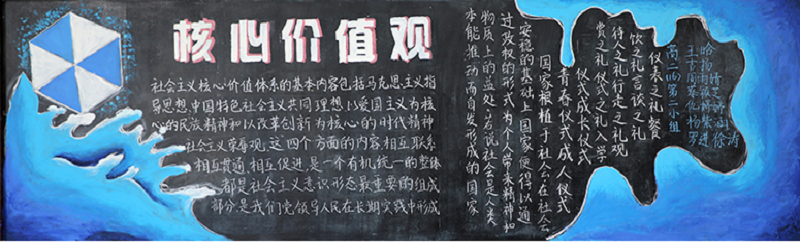 核心价值观
社会主义核心价值体系的基本内容包括马克思主义指
导思想中国特色社会主义共同理想以爱国主义为核
心的民族精神和以改革创新为核心的时代精神
社会主义荣辱观,这四个方面的内容相互联系
相互贯通、相互促进,是一个有机统一的整体
都是社会主义意识形态最重要的组成
部分,是我们党领导人民在长期实践中形成
仪表之礼餐
饮之礼言谈之礼
待人之礼行走之礼观
赏之礼仪式之礼入学
仪式成长仪式
青春仪式成人仪式
国家根植于社会会在社会
安稳的基础上国家便得以通
过政权的形式为个人带来精神和
物质上的益处若说社会是人类
本能推动而自发形成的国家
高二
第二小组